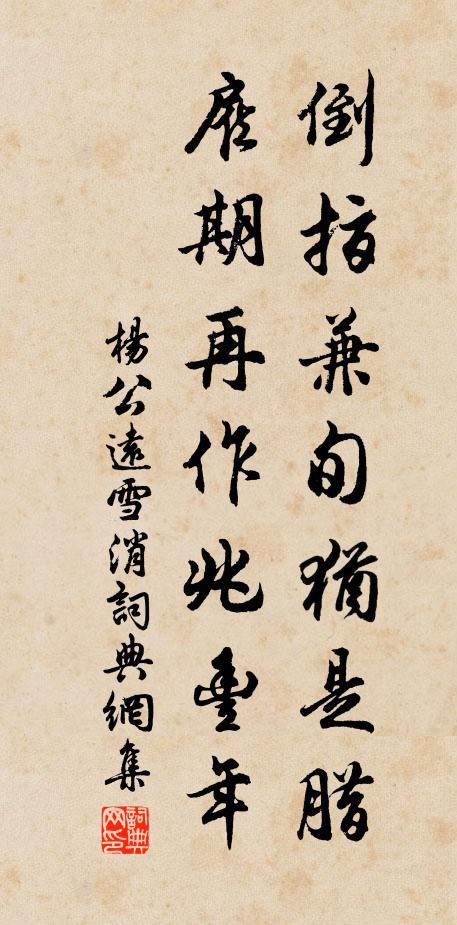 倒指兼旬猶是腊
應期再作兆豐年
楊公遠雪消詞典網集
詞典網印